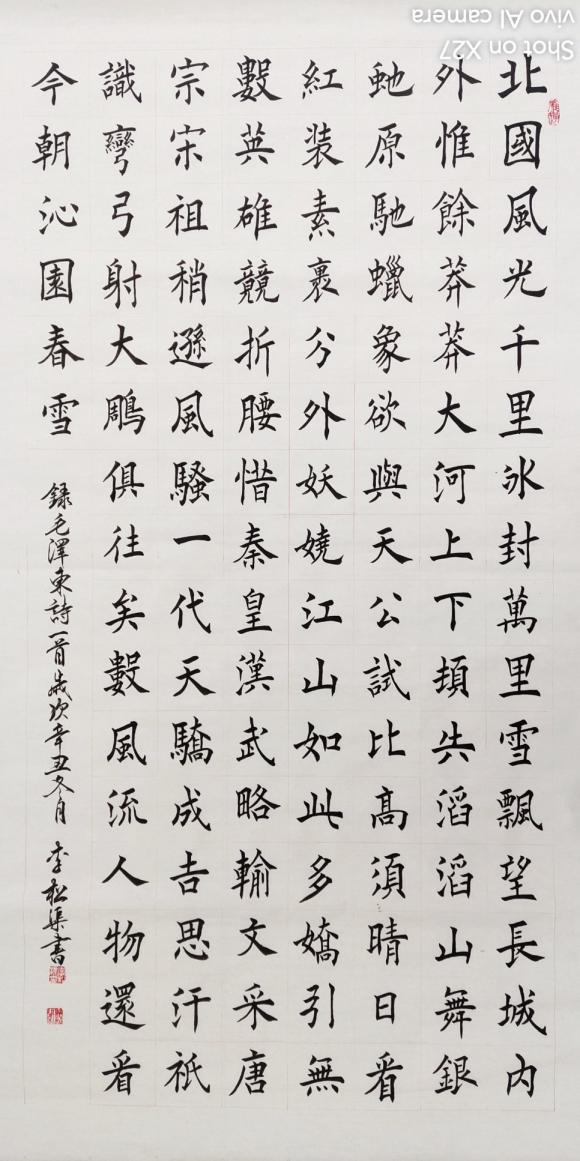 北國風光千里冰封萬里雪飄望長城內
外惟餘莽莽大河上下頓失滔滔山舞銀
虵原馳蠟象欲與天公試比高須晴日看
紅裝素裹分外妖嬈江山如此多嬌引無
數英雄競折腰惜秦皇漢武略輸文采唐
宗宋祖稍遜風騷一代天驕成吉思汗祇
識彎弓射大鵰俱往矣數風流人物還看
今朝沁園春雪
錄毛澤東詩一首歲次辛丑冬月 李松集書
Shot on X27
vivo AI camera